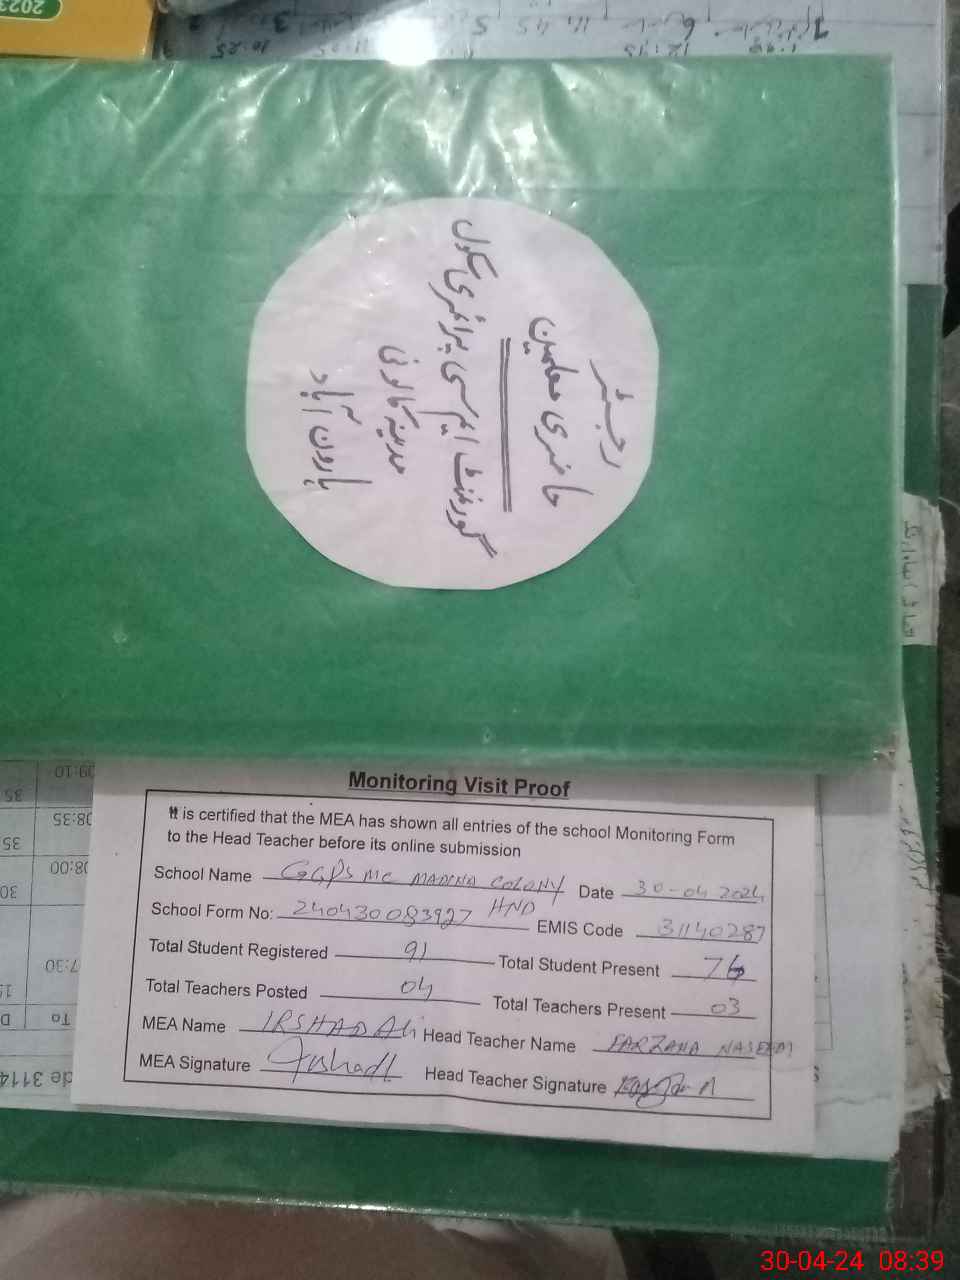 2023
رجسٹر
حاضری معلمین
گورنمنٹ ایم سی پرائمری سکول
مدینہ کالونی
ہارون آباد
Monitoring Visit Proof
It is certified that the MEA has shown all entries of the school Monitoring Form
to the Head Teacher before its online submission
School Name GGPS MC MADINA COLONY HND Date 30-04 2024
School Form No: 240430083927 EMIS Code 31140287
Total Student Registered 91 Total Student Present 76
Total Teachers Posted 04 Total Teachers Present 03
MEA Name IRSHAD Ali Head Teacher Name FARZANA NASEEM
MEA Signature Irshad Head Teacher Signature
09:10
35
08:35
35
08:00
30
7:30
To
de 3114
30-04-24 08:39